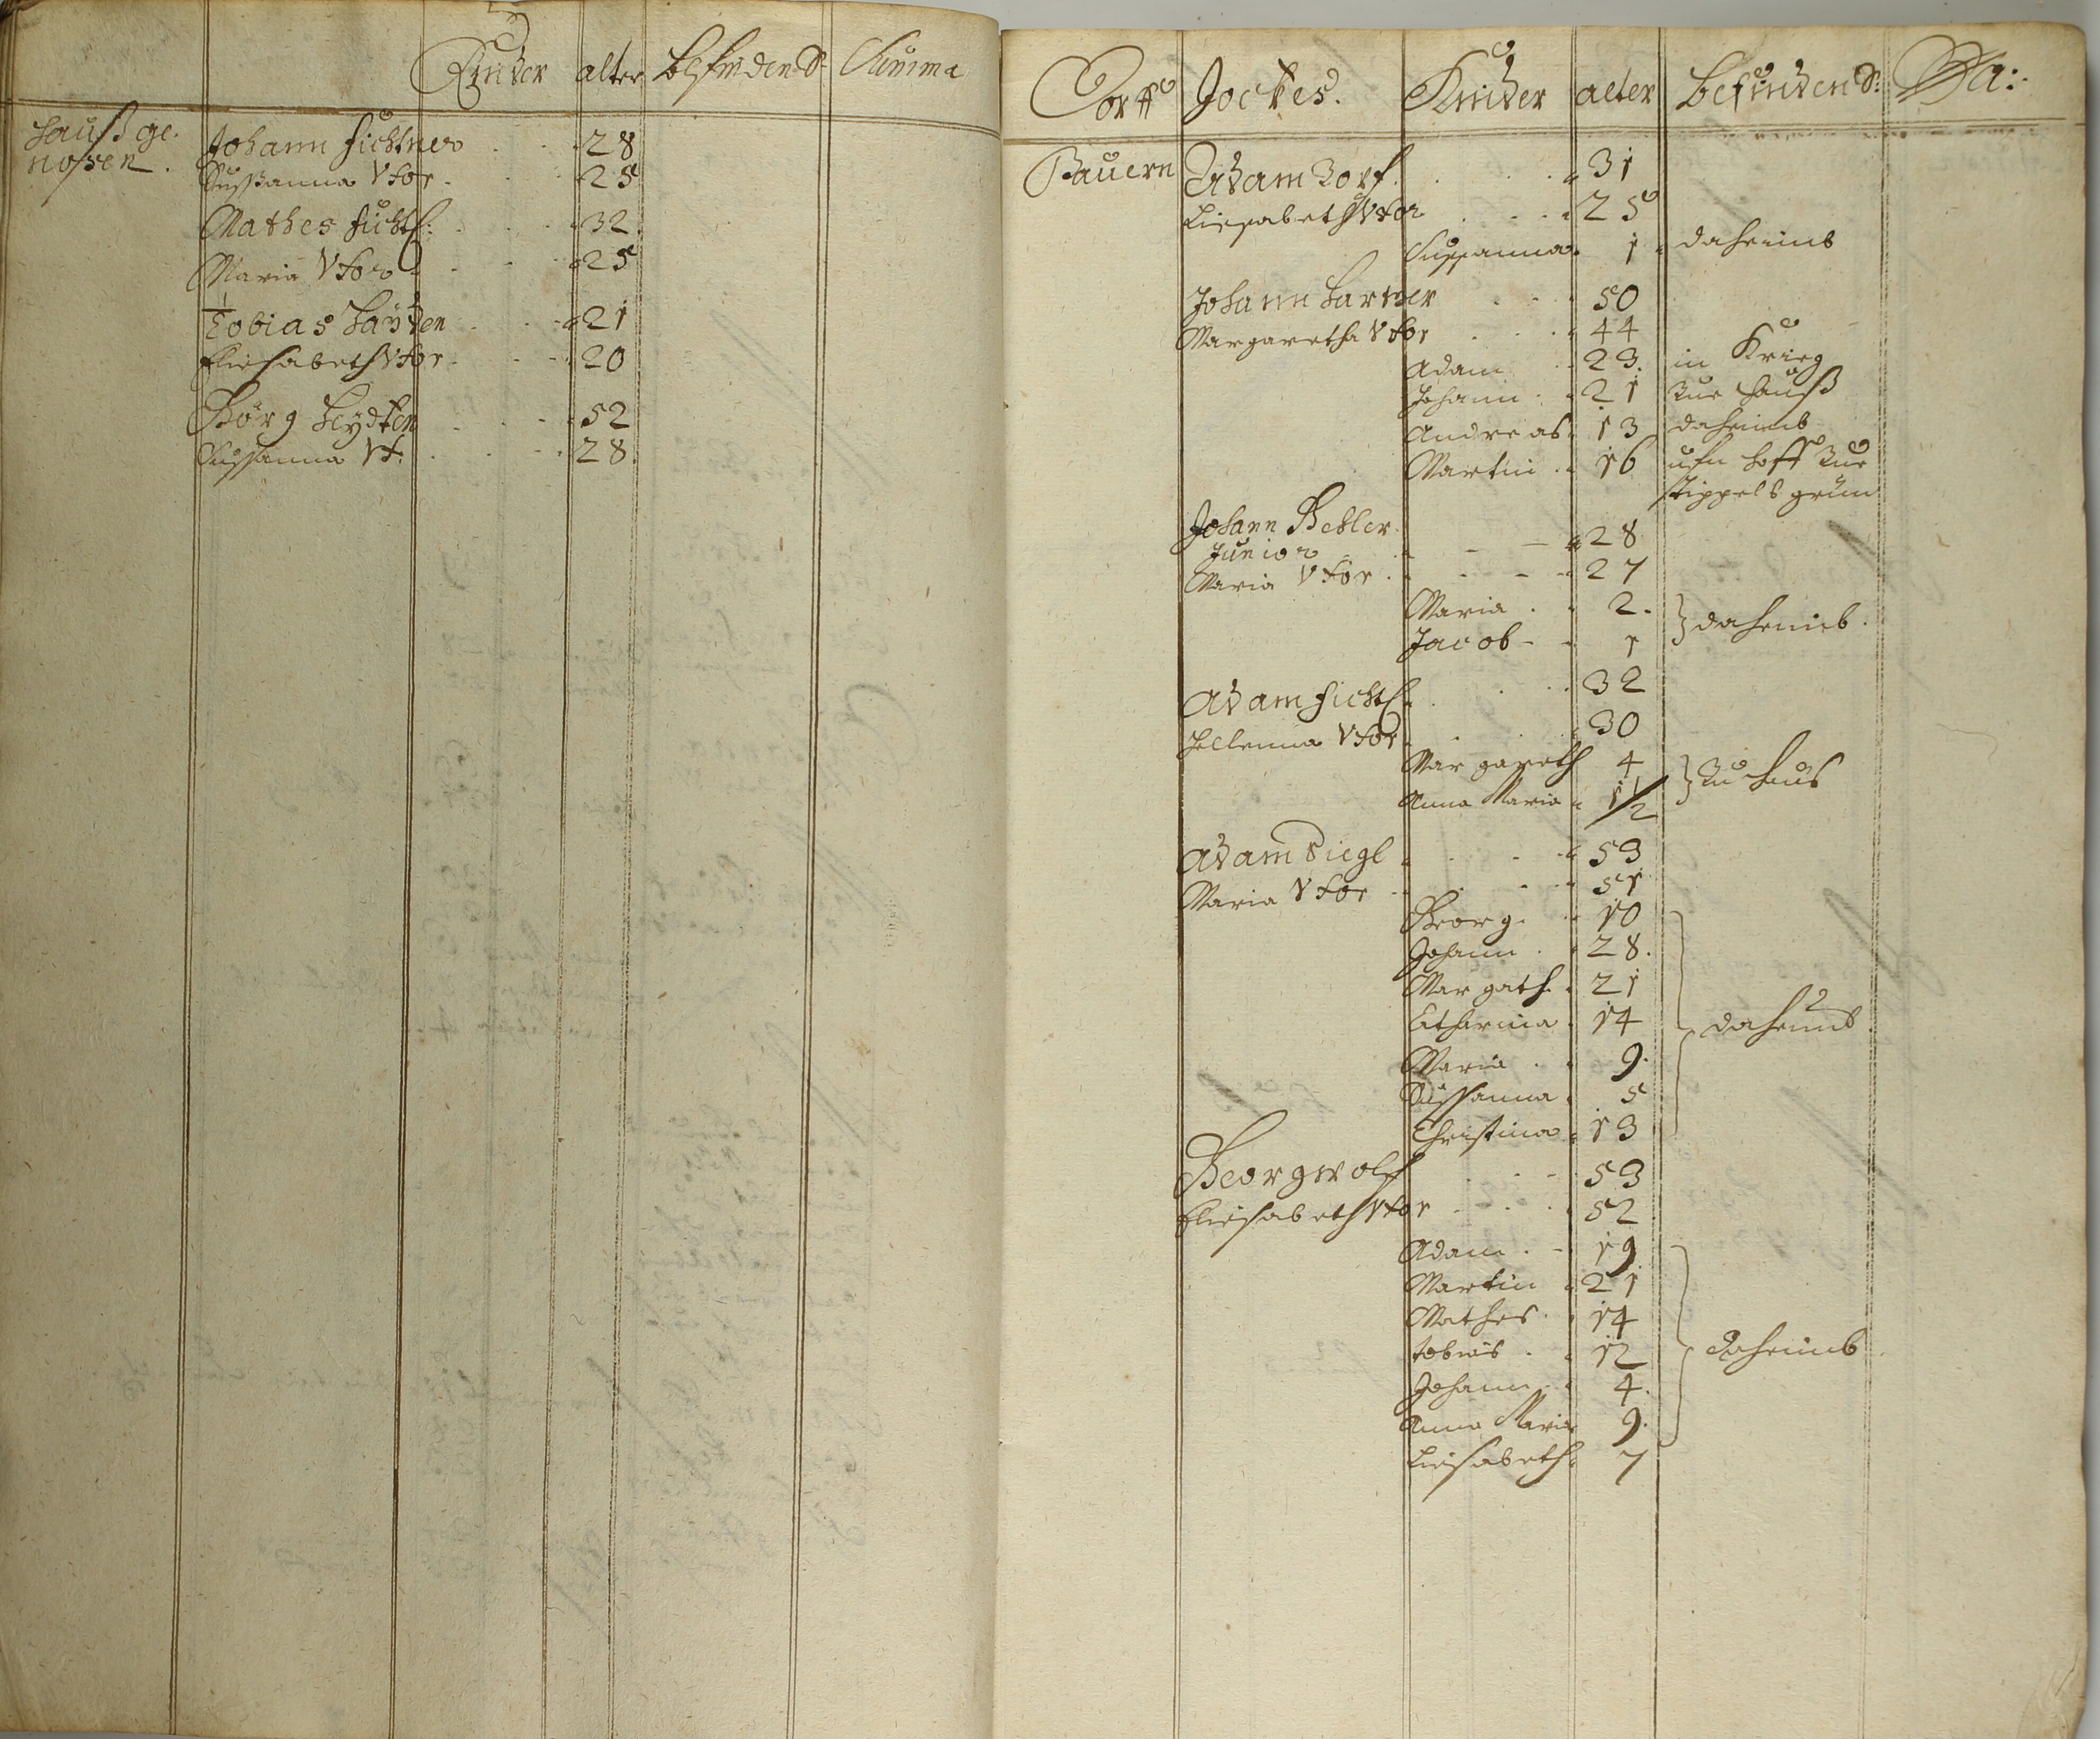 Kinder alter befinden S. Suma
Haußge-
nossen.
Johann Fichtner 28
Sussanna Vxor 25
Mathes Fichtl: 32.
Maria Vxor 25
Tobias Hayden 21
Eliesabeth Vxor 20
Görg Heydten 52
Sussanna Vx. 28.
Dorff Jockes. Kinder alter befinden S: Sa:
Bauern Adam Dorf. 31
Liesabeth Vxor 25
Sussanna 1 daheimb
Johann Larner 50
Margaretha Vxor 44
Adam 23. in Krieg
Johann 21 zue Hauß
Andreas 13 daheimb
Martin 16 ufn Hoff zue
Tippelsgrün
Johann Behler
Junior 28
Maria Vxor 27
Maria 2.
Jacob 1 daheimb.
Adam Fichtl 32
Hellenna Vxor 30
Margareth 4
Anna Maria 1½ zu Haus
Adam Siegl 53
Maria Vxor 51
Georg 10
Johann 28.
Margath. 21
Catharina 14 daheimb
Maria 9.
Sussanna 5
Christina 13
Georg Wolf 53
Eliesabeth Vxor 52
Adam 19
Martin 21
Mathes 14
Tobias 12 daheimb
Johann 4.
Anna Maria 9.
Liesabeth 7